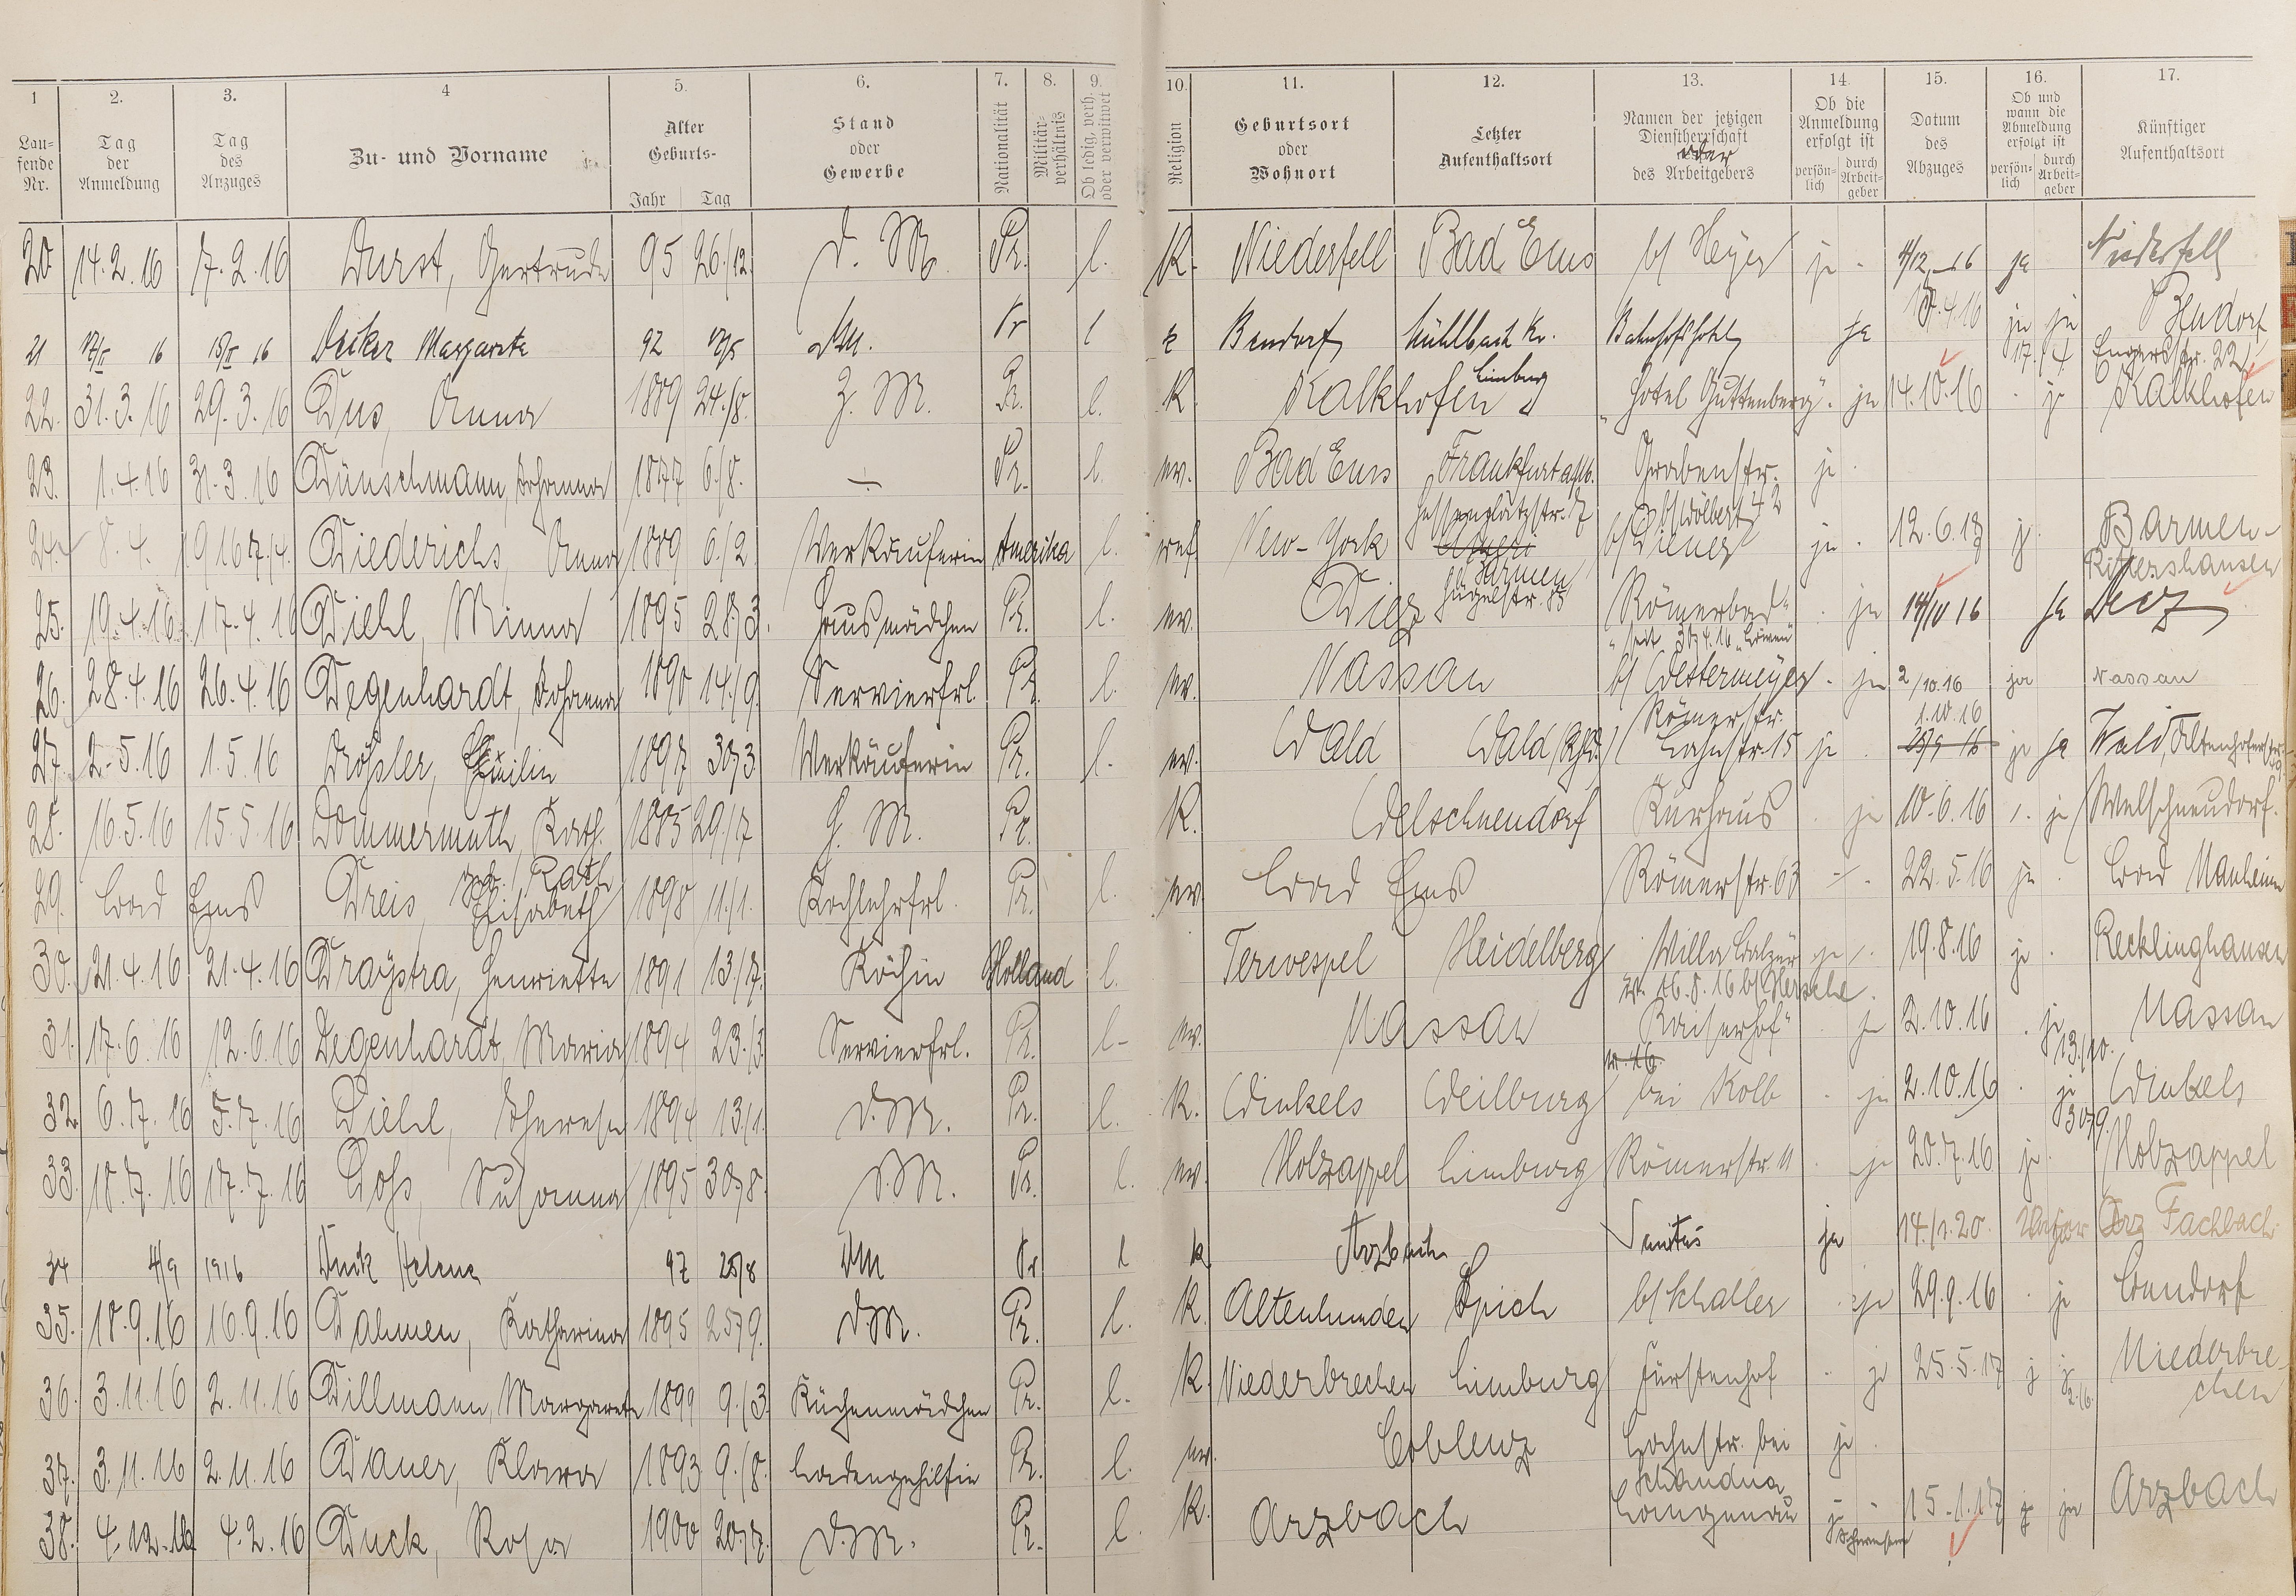 1 2. 3. 4 5. 6. 7. 8. 9. 10. 11. 12. 13. 14. 15. 16. 17.
Lau-
fende
Nr.
Tag
der
Anmeldung
Tag
des
Anzuges
Zu- und Vorname
Alter
Geburts-
Jahr Tag
Stand
oder
Gewerbe
Nationalität
Militär-
verhältnis
Ob ledig, verh.
oder verwitwet
Religion
Geburtsort
oder
Wohnort
Letzter
Aufenthaltsort
Namen der jetzigen
Dienstherrschaft
oder
des Arbeitgebers
Ob die
Anmeldung
erfolgt ist
persön-
lich
durch
Arbeit-
geber
Datum
des
Abzuges
Ob und
wann die
Abmeldung
erfolgt ist
persön-
lich
durch
Arbeit-
geber
Künftiger
Aufenthaltsort
20 14.2.16 7.2.16 Durst, Gertrude 95 26./12. D. M. Pr. l. K. Niederfell Bad Ems b/ Heyer ja - 4/12 16 ja Niederfell
21 16 16 Decker Margarete 92 DM. Pr l k Bendorf Mühlbach Bahnhofshotel ja 17.4.16 ja ja 17./4. Bendorf
Engersstr. 22
22. 31.3.16 29.3.16 Dus, Anna 1889 24./8. Z. M. Pr. l. K. Kalkhofen Limburg "Hotel Guttenberg". ja 14.10.16 . ja Kalkhofen
23. 1.4.16 31.3.16 Dünschmann, Johanna 1877 6./8. — Pr. l. ev. Bad Ems Frankfurt a/M. Grabenstr. 42 ja .
24. 8.4. 1916 7./4. Diederichs, Anna 1889 6./2. Verkäuferin Amerika l. ref. New-York Barmen
Hügelstr. 85 b/ Diener ja . 12.6.18 ja Barmen-
Rittershausen
25. 19.4.16 17.4.16 Diehl, Minna 1895 28./3. Hausmädchen Pr. l. ev. Diez "Römerbad" . ja 14/10 16 ja Diez
26. 28.4.16 26.4.16 Degenhardt, Johanna 1890 14./9. Servierfrl. Pr. l. ev. Nassau b/ Westermeyer . ja 2/10.16 ja Nassau
27. 2.5.16 1.5.16 Drößler, Emilie 1897 30./3. Verkäuferin Pr. l. ev. Wald Wald Römerstr.
Lahnstr. 15 ja . 1.10.16 ja ja Wald,
28. 16.5.16 15.5.16 Dommermuth, Kath. 1885 29./7. Z. M. Pr. K. Welschneudorf Kurhaus . ja 10.6.16 . ja Welschneudorf.
29. Bad Ems Dreis, Elisabeth 1898 11./1. Kochlehrfrl. Pr. l. ev. Bad Ems Römerstr. 63 22.5.16 ja . Bad Nauheim
30. 21.4.16 21.4.16 Draystra, Henriette 1891 13./7. Köchin Holland l. Terwespel Heidelberg Villa Balzer ja . 19.8.16 ja . Recklinghausen
31. 17.6.16 12.6.16 Degenhardt, Maria 1894 23./3. Servierfrl. Pr. l. ev. Nassau Kaiserhof" . ja 2.10.16 . ja 13./10. Nassau
32. 6.7.16 5.7.16 Diehl, Therese 1894 13./1. D. M. Pr. l. K. Winkels Weilburg bei Kolb . ja 2.10.16 . ja 30./9. Winkels
33. 18.7.16 17.7.16 Doß, Susanna 1895 30./8. D. M. Pr. l. ev. Holzappel Limburg Römerstr. 11 . ja 20.7.16 ja . Holzappel
34 4/9 1916 Duck Helene 97 25/8 DM Pr l k Arzbach Sanitas ja 14./1.20. Fachbach
35. 18.9.16 16.9.16 Dahmen, Katharina 1895 25./9. D. M. Pr. l. K. Altenhunden Spich b/ Schaller . ja 29.9.16 . ja Benndorf
36. 3.11.16 2.11.16 Dillmann, Margarete 1899 9./3. Küchenmädchen Pr. l. K. Niederbrechen Limburg Fürstenhof . ja 25.5.17 Niederbre-
chen
37. 3.11.16 2.11.16 Dauer, Klara 1893 9./8. Ladengehilfin Pr. l. ev. Coblenz Lahnstr. bei
Schandua ja .
38. 4.12.16 4.2.16 Duck, Rosa 1900 20./7. D. M. Pr. l. K. Arzbach Langenau 15.1.17 ja Arzbach